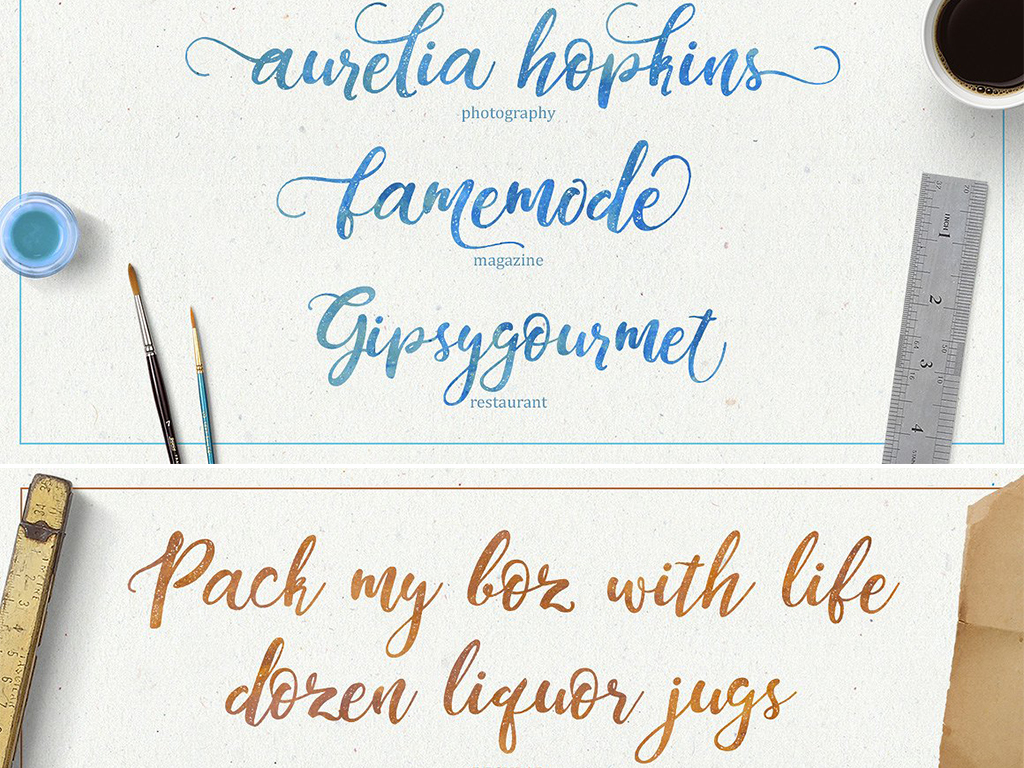 aurelia hopkins
photography
famemode
magazine
Gipsygourmet
restaurant
INCH
1
2
3
4
Pack my boz with life
dozen liquor jugs